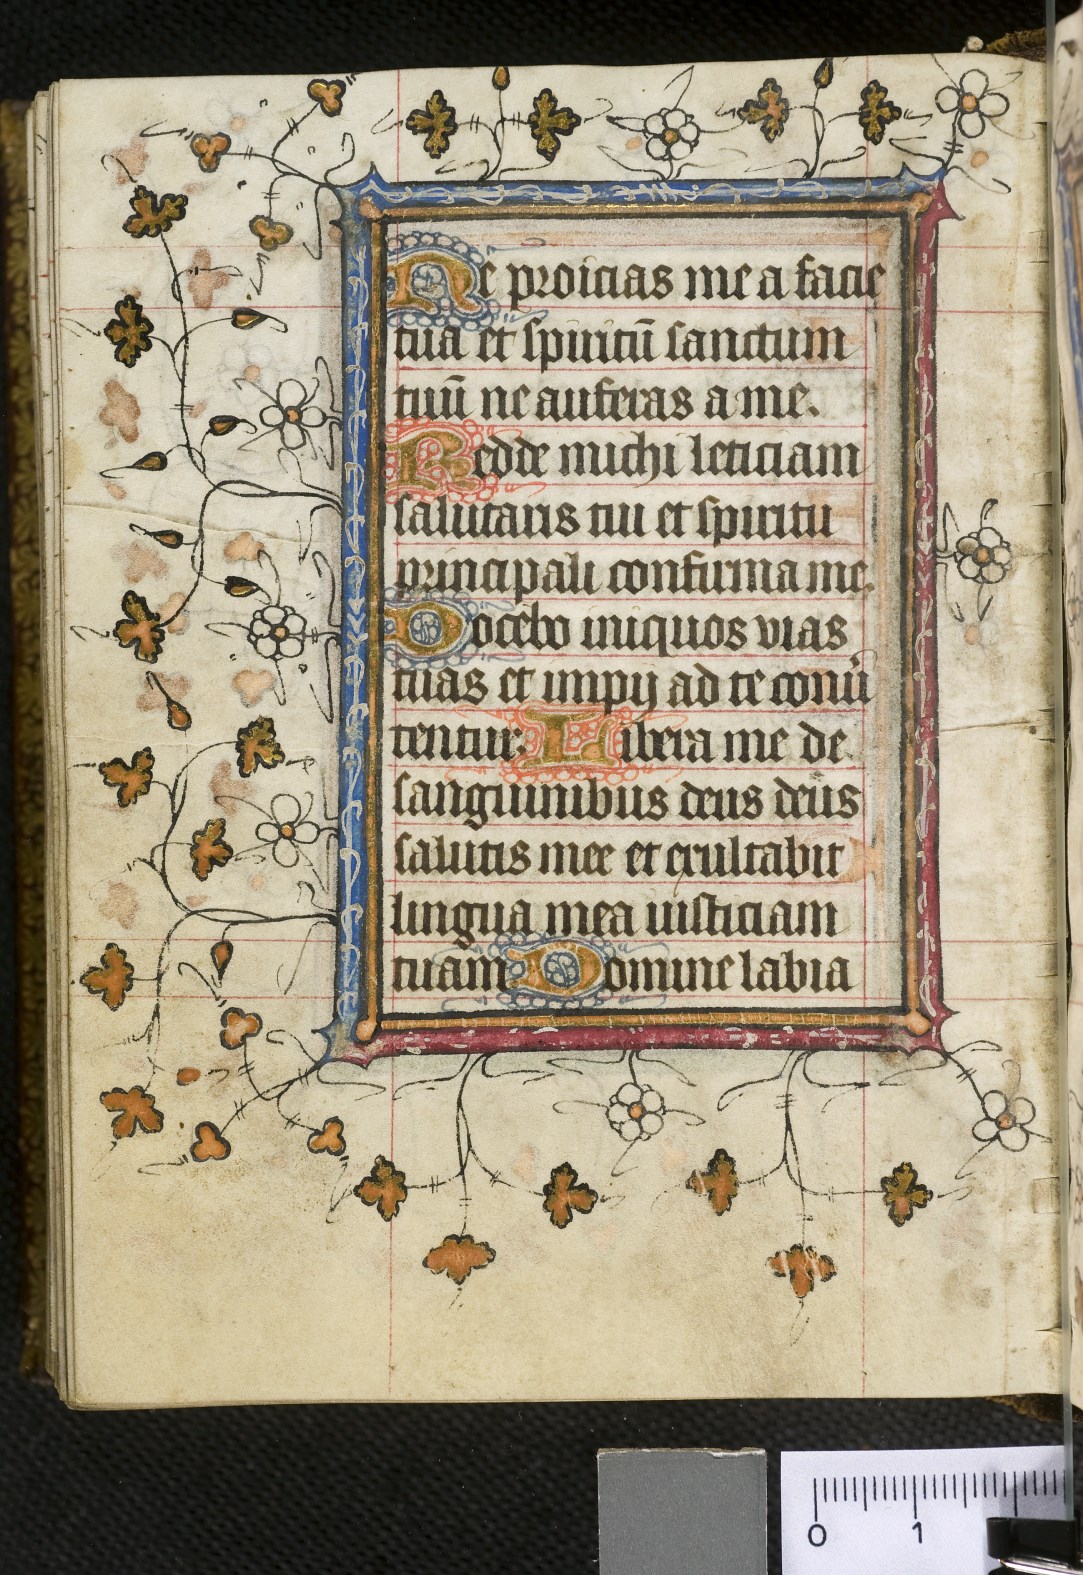 Ne proicias me a facie
tua et spiritū sanctum
tuū ne auferas a me.
Redde michi leticiam
salutaris tui et spiritu
principali confirma me.
Docebo iniquos vias
tuas et impij ad te conũ
tentur. Libera me de
sanguinibus deus deus
salutis mee et exultabit
lingua mea iusticiam
tuam. Domine labia
0 1